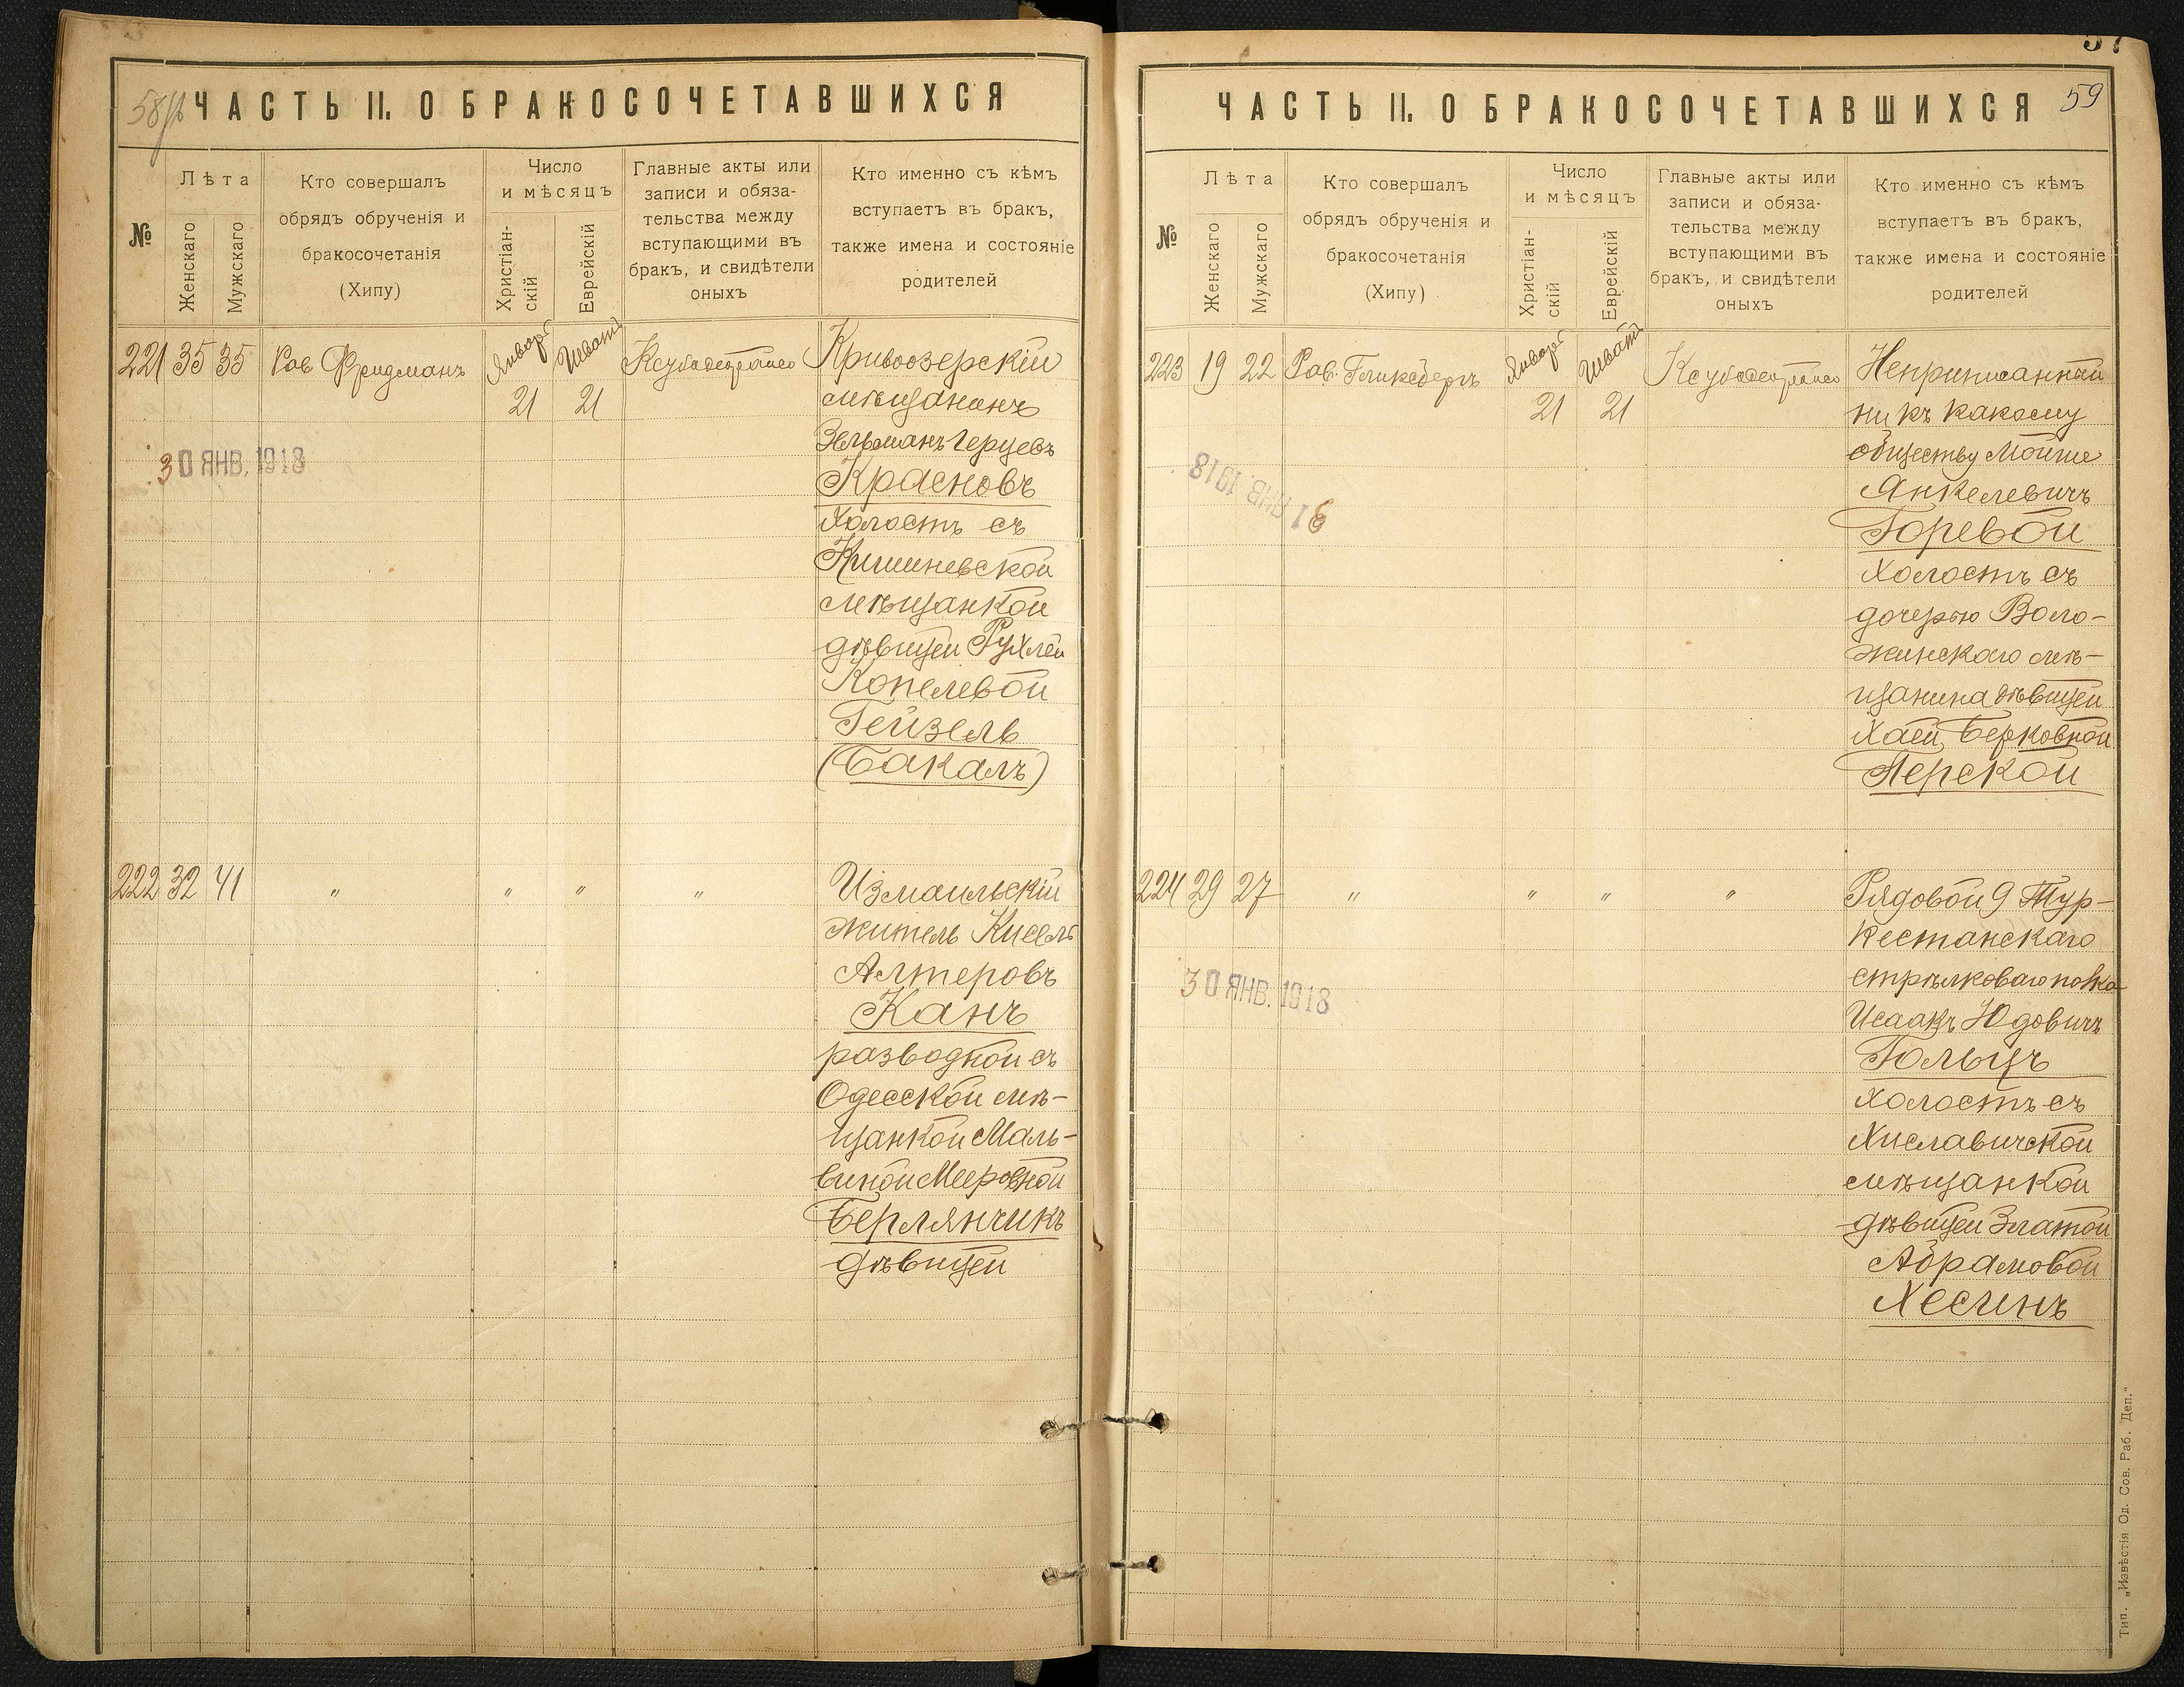 58 об
ЧАСТЬ II. О БРАКОСОЧЕТАВШИХСЯ
№
Лѣта
Женскаго
Мужскаго
Кто совершалъ
обрядъ обрученія и
бракосочетанія
(Хипу)
Число
и мѣсяцъ
Христіан-
скій
Еврейскій
Главные акты или
записи и обяза-
тельства между
вступающими въ
бракъ, и свидѣтели
оныхъ
Кто именно съ кѣмъ
вступаетъ въ бракъ,
также имена и состояніе
родителей
221 35 35 Рав Фридманъ
Январь 21
Шватъ 21
Кривоозерскій
мѣщанинъ
Зельманъ Герцевъ
Красновъ
холостъ съ
Кишиневской
мѣщанкой
дѣвицей Рухлей
Копелевой
Гейзель
(Бакалъ)
30 ЯНВ. 1918
222 32 41 " " " "
Измаильскій
житель Кисель
Алтеровъ
Канъ
разводной съ
Одесской мѣ-
щанкой Маль-
виной Мееровной
Берлянчикъ
дѣвицей
59
ЧАСТЬ II. О БРАКОСОЧЕТАВШИХСЯ
№
Лѣта
Женскаго
Мужскаго
Кто совершалъ
обрядъ обрученія и
бракосочетанія
(Хипу)
Число
и мѣсяцъ
Христіан-
скій
Еврейскій
Главные акты или
записи и обяза-
тельства между
вступающими въ
бракъ, и свидѣтели
оныхъ
Кто именно съ кѣмъ
вступаетъ въ бракъ,
также имена и состояніе
родителей
223 19 22 Рав. Гликсбергъ
Январь 21
Шватъ 21
Неприписанный
ни къ какому
обществу Мойше
Янкелевичъ
Горевой
холостъ съ
дочерью Воло-
жинскаго мѣ-
щанина дѣвицей
Хаей Берковной
Перской
31 ЯНВ. 1918
224 29 27 " " " "
Рядовой 9 Тур-
кестанскаго
стрѣлковаго полка
Исаакъ Юдовичъ
Гольцъ
холостъ съ
Хиславичской
мѣщанкой
дѣвицей Златой
Абрамовой
Хесинъ
30 ЯНВ. 1918
Тип. „Извѣстія Од. Сов. Раб. Деп.“